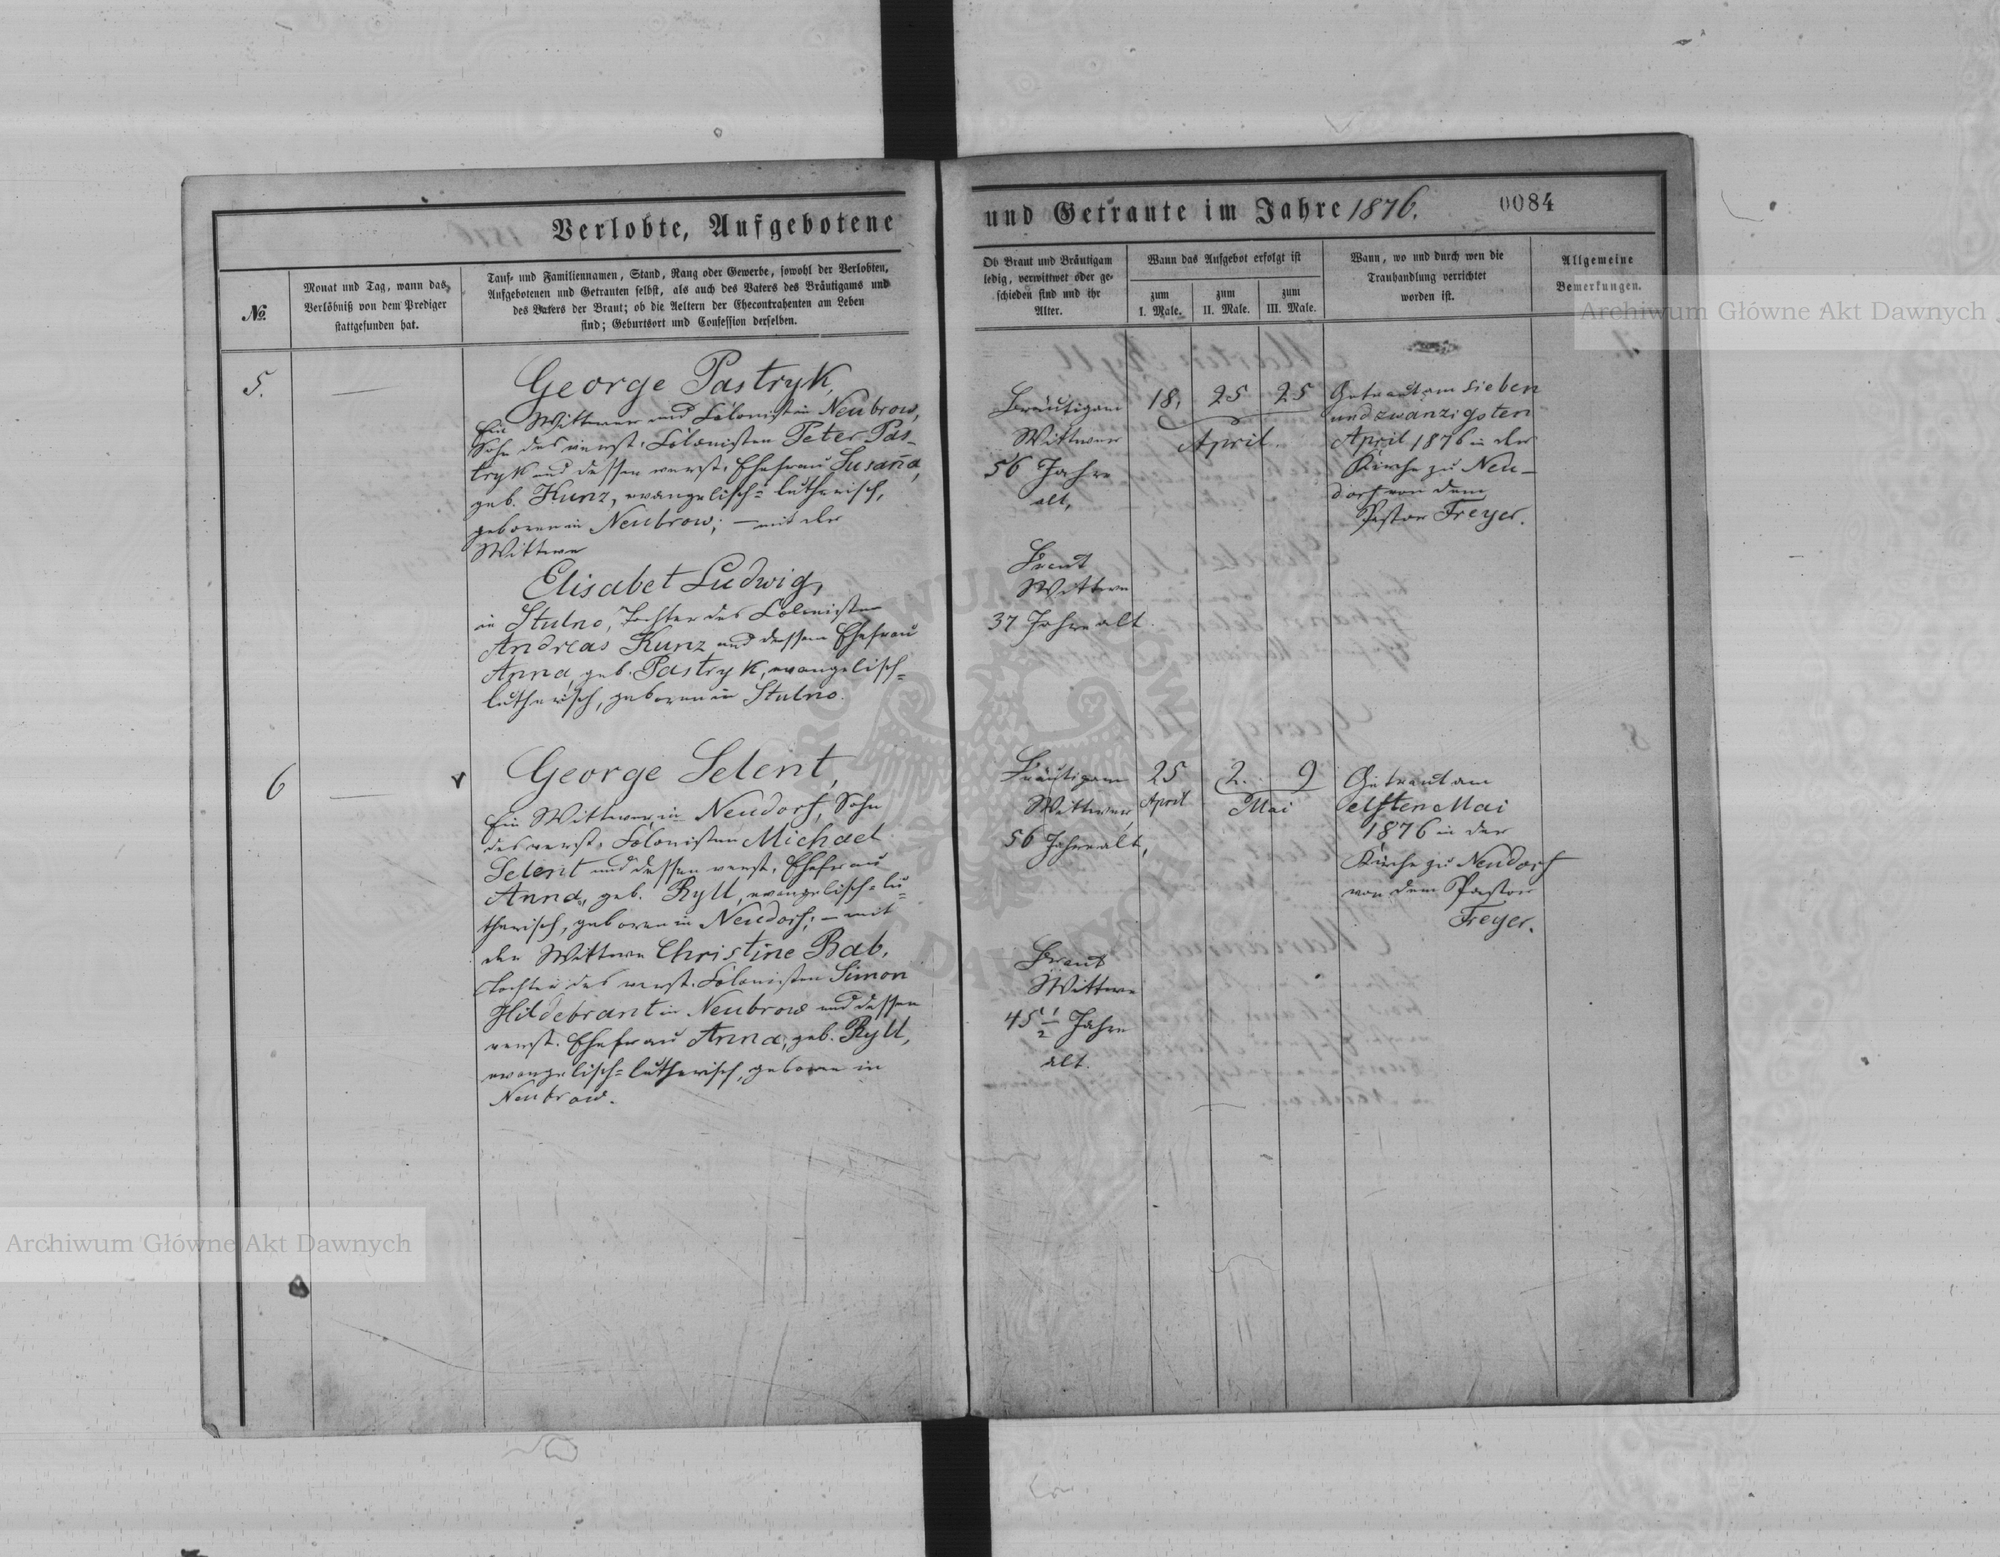 Verlobte, Aufgebotene und Getraute im Jahre 1876.
0084
№.
Monat und Tag, wann das
Verlöbniß von dem Prediger
stattgefunden hat.
Tauf- und Familiennamen, Stand, Rang oder Gewerbe, sowohl der Verlobten,
Aufgebotenen und Getrauten selbst, als auch des Vaters des Bräutigams und
des Vaters der Braut; ob die Aeltern der Ehecontrahenten am Leben
sind; Geburtsort und Confession derselben.
Ob Braut und Bräutigam
ledig, verwittwet oder ge-
schieden sind und ihr
Alter.
Wann das Aufgebot erfolgt ist
zum
I. Male.
zum
II. Male.
zum
III. Male.
Wann, wo und durch wen die
Trauhandlung verrichtet
worden ist.
Allgemeine
Bemerkungen.
5.
George Pastryk,
Ein Wittwer und Colonist in Neubrow,
Sohn des verst. Colonisten Peter Pas-
tryk und dessen verst. Ehefrau Susan̄a,
geb. Kunz, evangelisch=lutherisch,
geboren in Neubrow; – mit der
Wittwe
Elisabet Ludwig,
in Stulno, Tochter des Colonisten
Andreas Kunz und dessen Ehefrau
Anna, geb. Pastryk, evangelisch=
lutherisch, geboren in Stulno.
Bräutigam
Wittwer
56 Jahre
alt,
Braut
Wittwe
37 Jahre alt.
18,
25
25
April
Getraut am sieben
und zwanzigsten
April 1876 in der
Kirche zu Neu-
dorf von dem
Pastor Freyer.
6
George Selent,
Ein Wittwer in Neudorf, Sohn
des verst. Colonisten Michael
Selent und dessen verst. Ehefrau
Anna, geb. Ryll, evangelisch=lu=
therisch, geboren in Neudorf; – mit
der Wittwe Christine Bab,
Tochter des verst. Colonisten Simon
Hildebrant in Neubrow und dessen
verst. Ehefrau Anna, geb. Ryll,
evangelisch=lutherisch, geboren in
Neubrow.
Bräutigam
Wittwer,
56 Jahre alt,
Braut
Wittwe
45 1/2 Jahre
alt.
25
April
2.
9
Mai
Getraut am
elften Mai
1876 in der
Kirche zu Neudorf
von dem Pastor
Freyer.
Archiwum Główne Akt Dawnych
Archiwum Główne Akt Dawnych